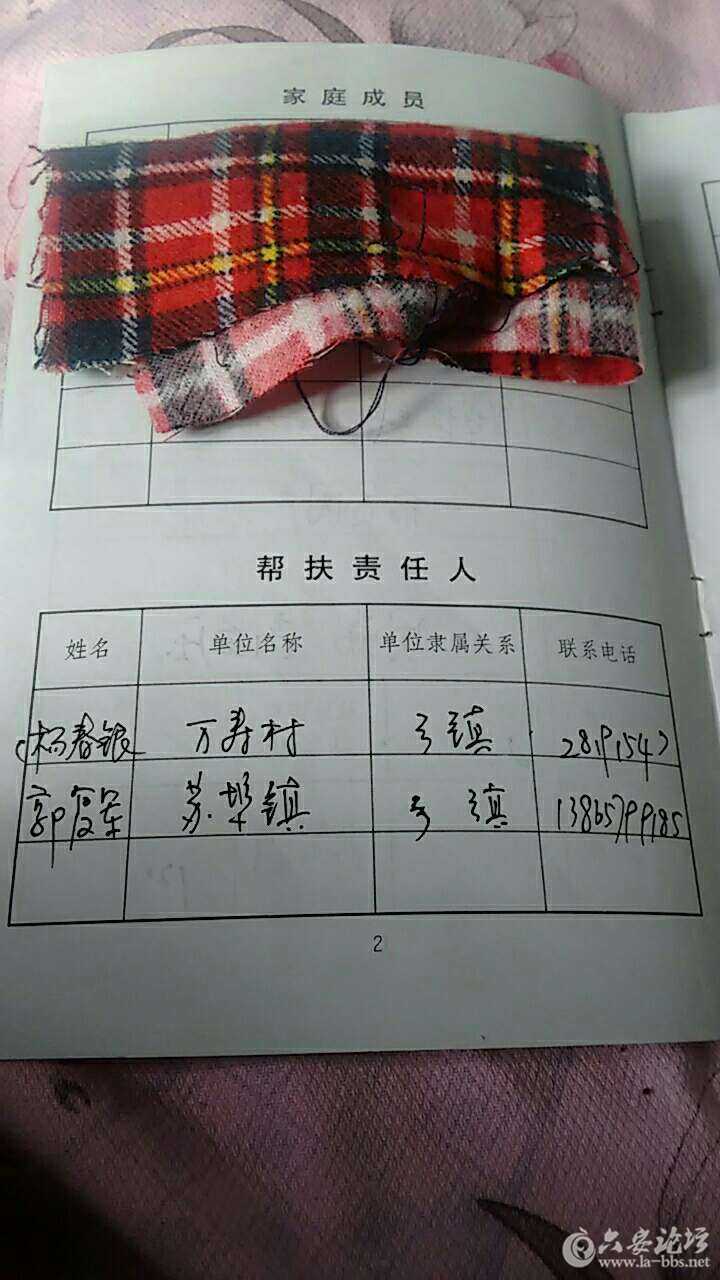 家庭成员
帮扶责任人
姓名 单位名称 单位隶属关系 联系电话
杨春银 万寿村 乡镇
郭 苏埠镇 乡镇 13865799185
2
六安论坛
www.la-bbs.net